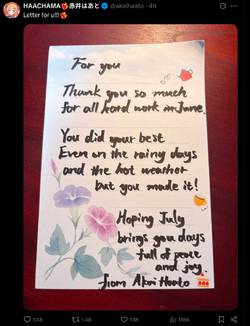 HAACHAMA❤️‍🔥赤井はあと @akaihaato · 4h
Letter for u!!!❤️‍🔥
For you
Thank you so much
for all hard work in June.
You did your best
Even on the rainy days
and the hot weather
but you made it!
Hoping July
brings you days
full of peace
and joy.
from Akai Haato
348
1.4K
13K
118K